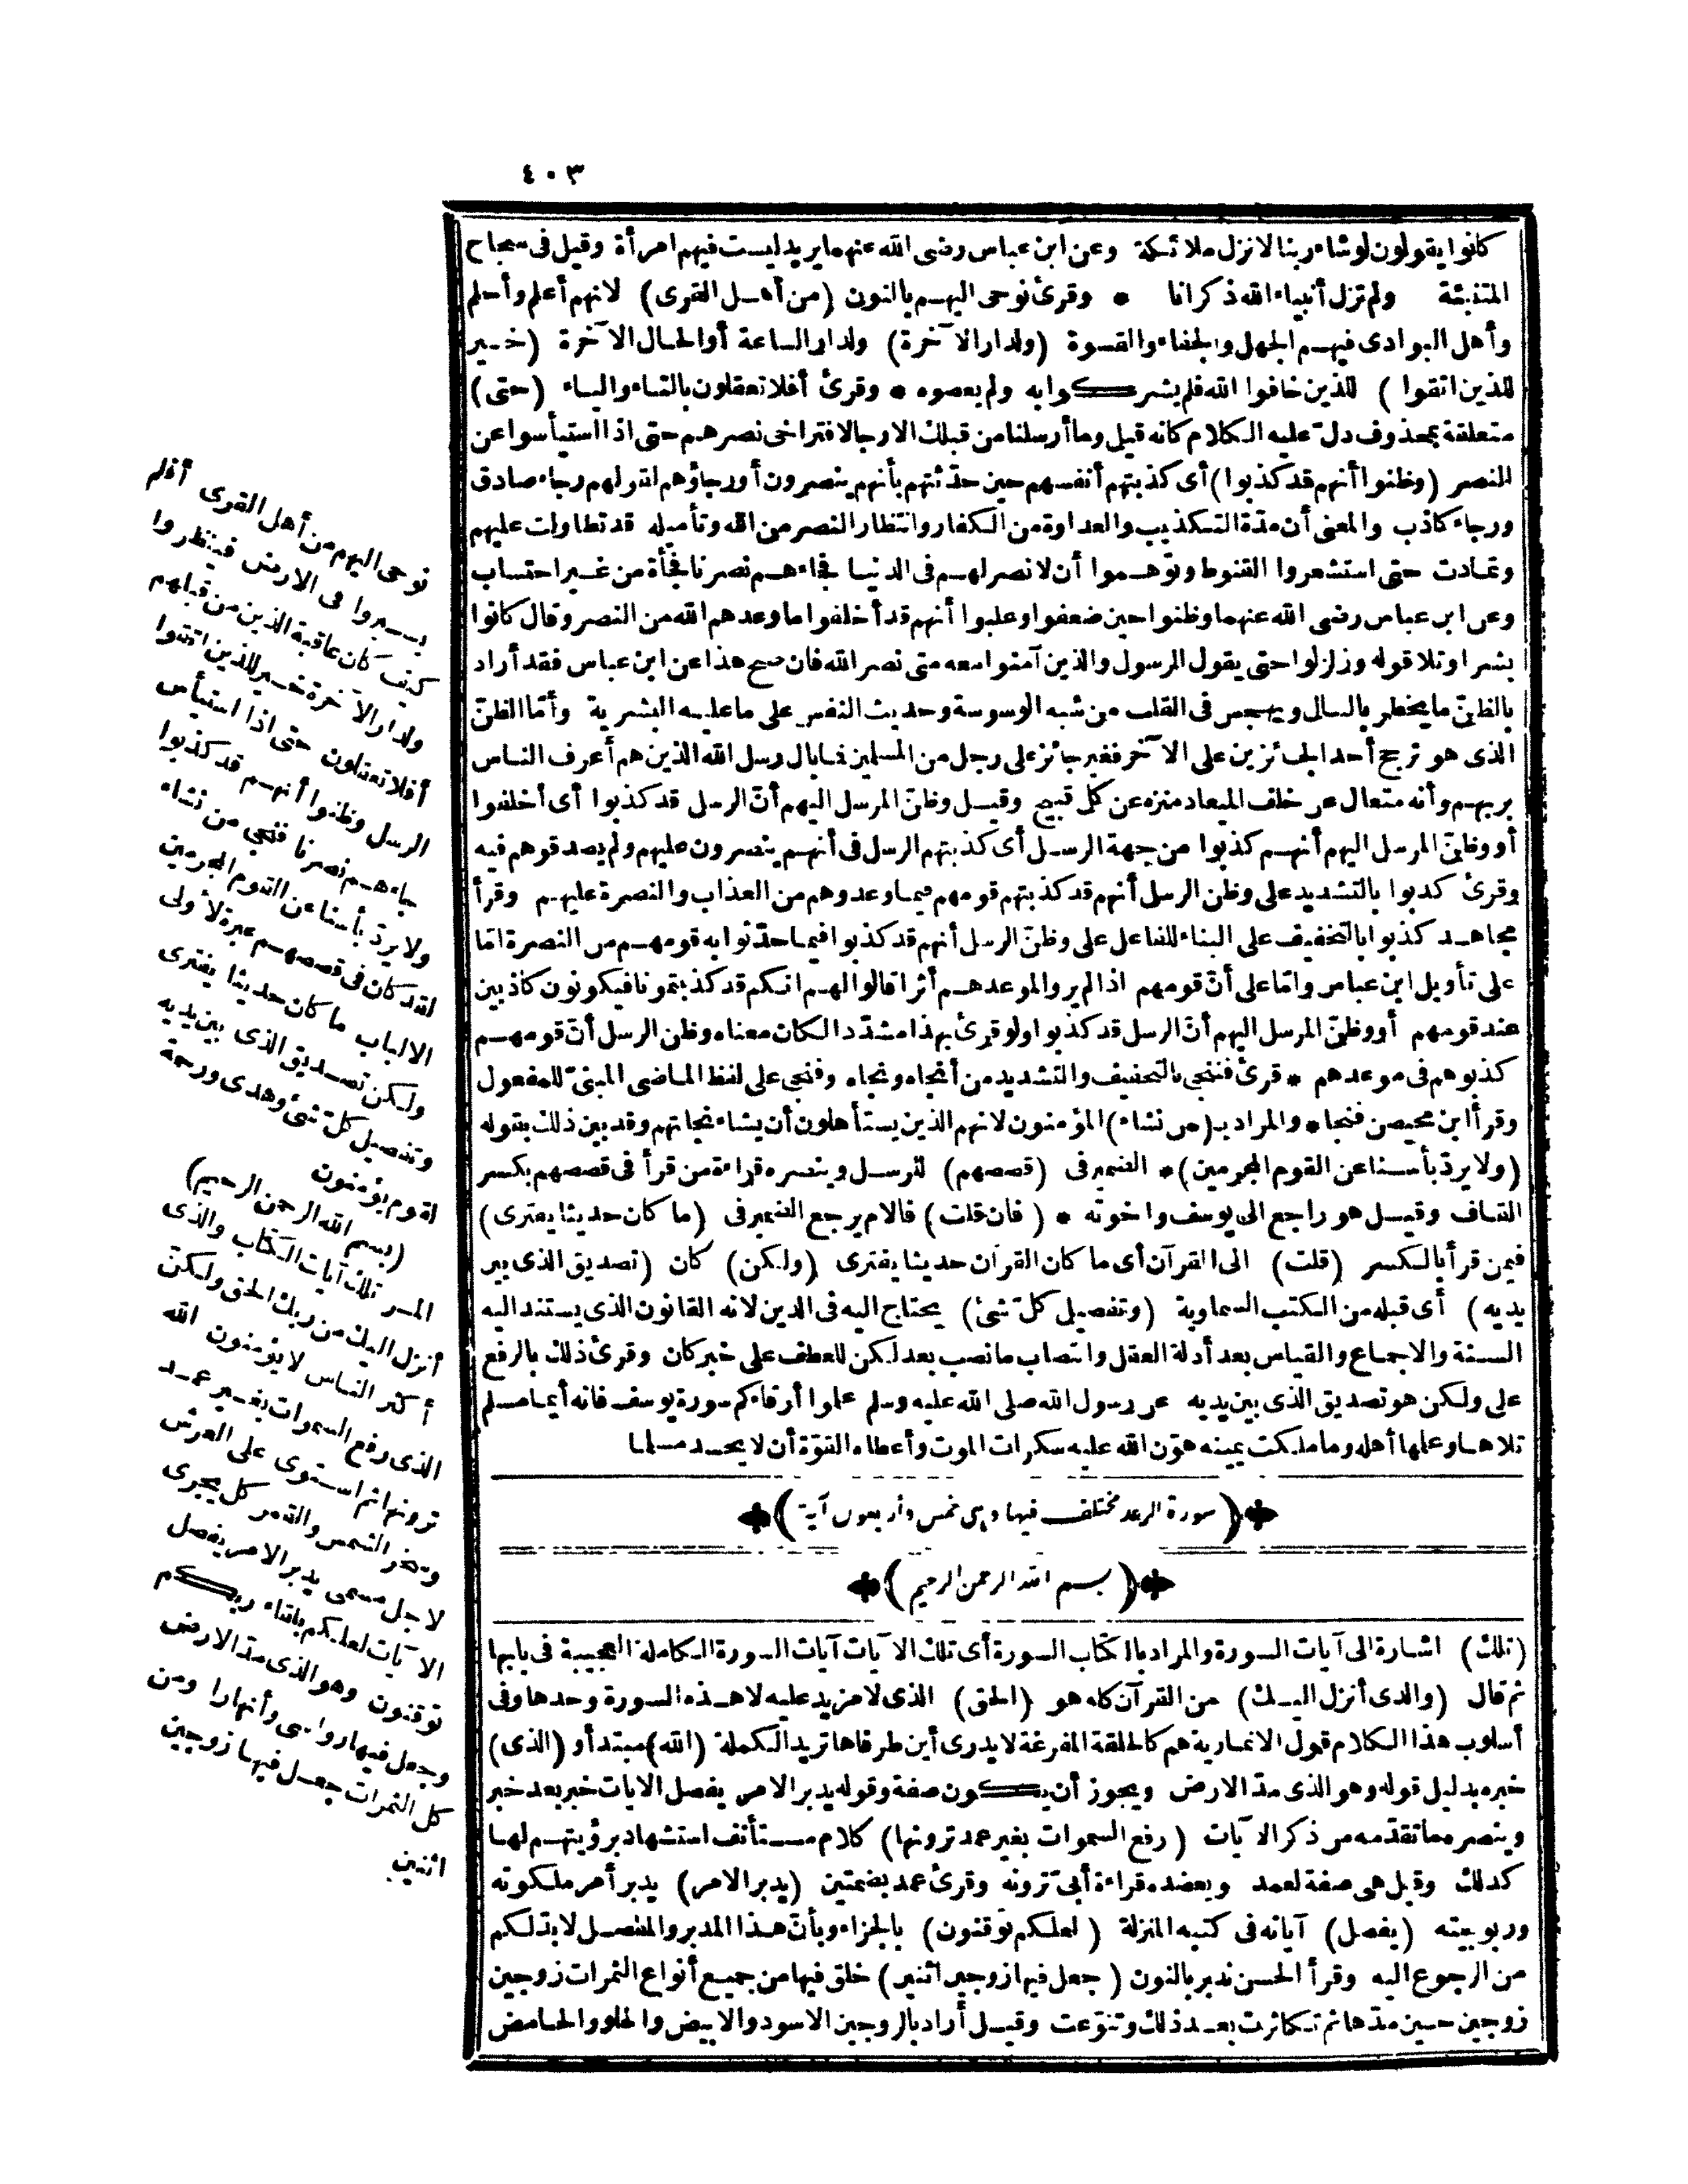 ٤٠٣
كانوا يقولون لو شاء ربنا لانزل ملائكة وعن ابن عباس رضى الله عنهما يريد ليست فيهم امرأة وقيل فى سجاح
المتنبئة ولم تزل أنبياء الله ذكرانا * وقرئ نوحى اليهم بالنون (من أهل القرى) لانهم أعلم وأحلم
وأهل البوادى فيهم الجهل والجفاء والقسوة (ولدار الآخرة) ولدار الساعة أو الحال الآخرة (خير
للذين اتقوا) للذين خافوا الله فلم يشركوا به ولم يعصوه * وقرئ أفلا تعقلون بالتاء والياء (حتى)
متعلقة بمحذوف دلّ عليه الكلام كانه قيل وما أرسلنا من قبلك الا رجالا فتراخى نصرهم حتى اذا استيأسوا عن
النصر (وظنوا أنهم قد كذبوا) أى كذبتهم أنفسهم حين حدّثتهم بأنهم ينصرون أو رجاؤهم لقولهم رجاء صادق
ورجاء كاذب والمعنى أن مدّة التكذيب والعداوة من الكفار وانتظار النصر من الله وتأميله قد تطاولت عليهم
وتمادت حتى استشعروا القنوط وتوهموا أن لا نصر لهم فى الدنيا فجاءهم نصرنا فجأة من غير احتساب
وعن ابن عباس رضى الله عنهما وظنوا حين ضعفوا وغلبوا أنهم قد أخلفوا ما وعدهم الله من النصر وقال كانوا
بشرا وتلا قوله وزلزلوا حتى يقول الرسول والذين آمنوا معه متى نصر الله فان صح هذا عن ابن عباس فقد أراد
بالظنّ ما يخطر بالبال ويهجس فى القلب من شبه الوسوسة وحديث النفس على ما عليه البشرية وأمّا الظنّ
الذى هو ترجح أحد الجائزين على الآخر فغير جائز على رجل من المسلمين فما بال رسل الله الذين هم أعرف الناس
بربهم وأنه متعال عن خلف الميعاد منزه عن كل قبيح وقيل وظنّ المرسل اليهم أنّ الرسل قد كذبوا أى أخلفوا
أو وظنّ المرسل اليهم أنهم كذبوا من جهة الرسل أى كذبتهم الرسل فى أنهم ينصرون عليهم ولم يصدقوهم فيه
وقرئ كذبوا بالتشديد على وظن الرسل أنهم قد كذبتهم قومهم فيما وعدوهم من العذاب والنصرة عليهم وقرأ
مجاهد كذبوا بالتخفيف على البناء للفاعل على وظنّ الرسل أنهم قد كذبوا فيما حدّثوا به قومهم من النصرة امّا
على تأويل ابن عباس وامّا على أنّ قومهم اذا لم يروا لموعدهم أثرا قالوا لهم انكم قد كذبتمونا فيكونون كاذبين
عند قومهم أو وظنّ المرسل اليهم أنّ الرسل قد كذبوا ولو قرئ بهذا مشدّدا لكان معناه وظن الرسل أنّ قومهم
كذبوهم فى موعدهم * قرئ فننجى بالتخفيف والتشديد من أنجاه ونجاه وفنجى على لفظ الماضى المبنىّ للمفعول
وقرأ ابن محيصن فنجا * والمراد ب(من نشاء) المؤمنون لانهم الذين يستأهلون أن يشاء نجاتهم وقد بين ذلك بقوله
(ولا يردّ بأسنا عن القوم المجرمين) * الضمير فى (قصصهم) للرسل وينصره قراءة من قرأ فى قصصهم بكسر
القاف وقيل هو راجع الى يوسف واخوته * (فان قلت) فالام يرجع الضمير فى (ما كان حديثا يفترى)
فيمن قرأ بالكسر (قلت) الى القرآن أى ما كان القرآن حديثا يفترى (ولكن) كان (تصديق الذى بين
يديه) أى قبله من الكتب السماوية (وتفصيل كلّ شئ) يحتاج اليه فى الدين لانه القانون الذى يستند اليه
السنة والاجماع والقياس بعد أدلة العقل وانتصاب ما نصب بعد لكن للعطف على خبر كان وقرئ ذلك بالرفع
على ولكن هو تصديق الذى بين يديه عن رسول الله صلى الله عليه وسلم علموا أرقاءكم سورة يوسف فانه أيما مسلم
تلاها وعلمها أهله وما ملكت يمينه هوّن الله عليه سكرات الموت وأعطاه القوّة أن لا يحسد مسلما
(سورة الرعد مختلف فيها وهى خمس وأربعون آية)
(بسم الله الرحمن الرحيم)
(تلك) اشارة الى آيات السورة والمراد بالكتاب السورة أى تلك الآيات آيات السورة الكاملة العجيبة فى بابها
ثم قال (والذى أنزل اليك) من القرآن كله هو (الحق) الذى لا مزيد عليه لا هذه السورة وحدها وفى
أسلوب هذا الكلام قول الانمارية هم كالحلقة المفرغة لا يدرى أين طرفاها تريد الكملة (الله) مبتدأ و (الذى)
خبره بدليل قوله وهو الذى مدّ الارض ويجوز أن يكون صفة وقوله يدبر الامر يفصل الآيات خبر بعد خبر
وينصره ما تقدّمه من ذكر الآيات (رفع السموات بغير عمد ترونها) كلام مستأنف استشهاد برؤيتهم لها
كذلك وقيل هى صفة لعمد ويعضده قراءة أبىّ ترونه وقرئ عمد بضمتين (يدبر الامر) يدبر أمر ملكوته
وربوبيته (يفصل) آياته فى كتبه المنزلة (لعلكم توقنون) بالجزاء وبأنّ هذا المدبر والمفصل لا بدّ لكم
من الرجوع اليه وقرأ الحسن ندبر بالنون (جعل فيها زوجين اثنين) خلق فيها من جميع أنواع الثمرات زوجين
زوجين حين مدّها ثم تكاثرت بعد ذلك وتنوّعت وقيل أراد بالزوجين الاسود والابيض والحلو والحامض
نوحى اليهم من أهل القرى أفلم
يسيروا فى الارض فينظروا
كيف كان عاقبة الذين من قبلهم
ولدار الآخرة خير للذين اتقوا
أفلا تعقلون حتى اذا استيأس
الرسل وظنوا أنهم قد كذبوا
جاءهم نصرنا فنجى من نشاء
ولا يردّ بأسنا عن القوم المجرمين
لقد كان فى قصصهم عبرة لأولى
الالباب ما كان حديثا يفترى
ولكن تصديق الذى بين يديه
وتفصيل كلّ شئ وهدى ورحمة
لقوم يؤمنون
(بسم الله الرحمن الرحيم)
المر تلك آيات الكتاب والذى
أنزل اليك من ربك الحق ولكنّ
أكثر الناس لا يؤمنون الله
الذى رفع السموات بغير عمد
ترونها ثم استوى على العرش
وسخر الشمس والقمر كل يجرى
لاجل مسمى يدبر الامر يفصل
الآيات لعلكم بلقاء ربكم
توقنون وهو الذى مدّ الارض
وجعل فيها رواسى وأنهارا ومن
كل الثمرات جعل فيها زوجين
اثنين